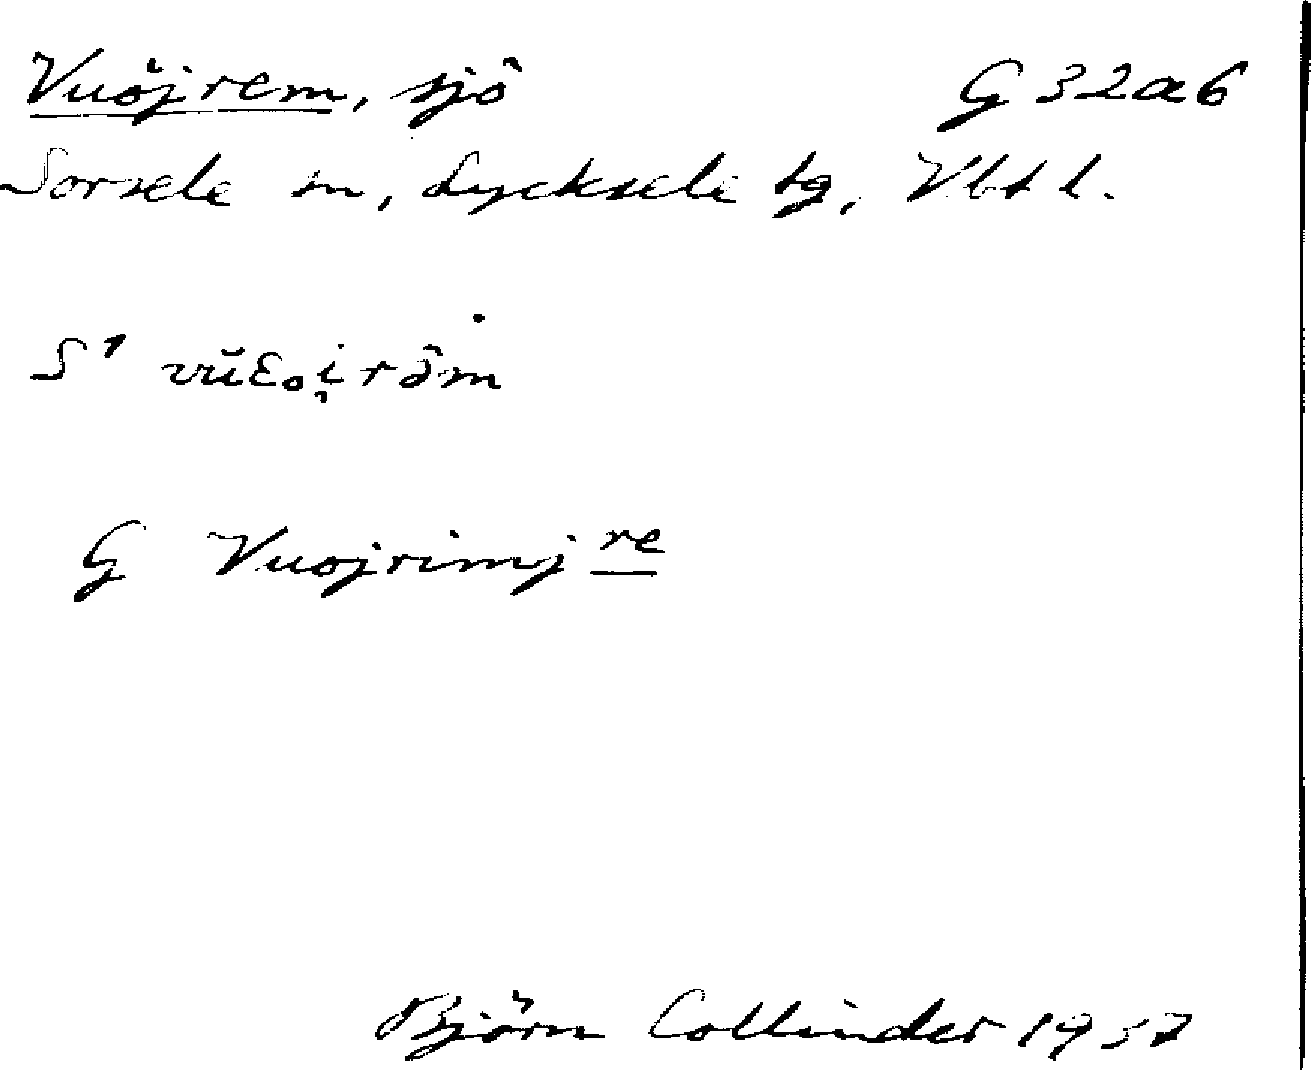 Vuöjrem, sjö G 32a6
Sorsele sn, Lycksele tg, Vbt l.
S¹
G Vuojrimj re
Björn Collinder 1937